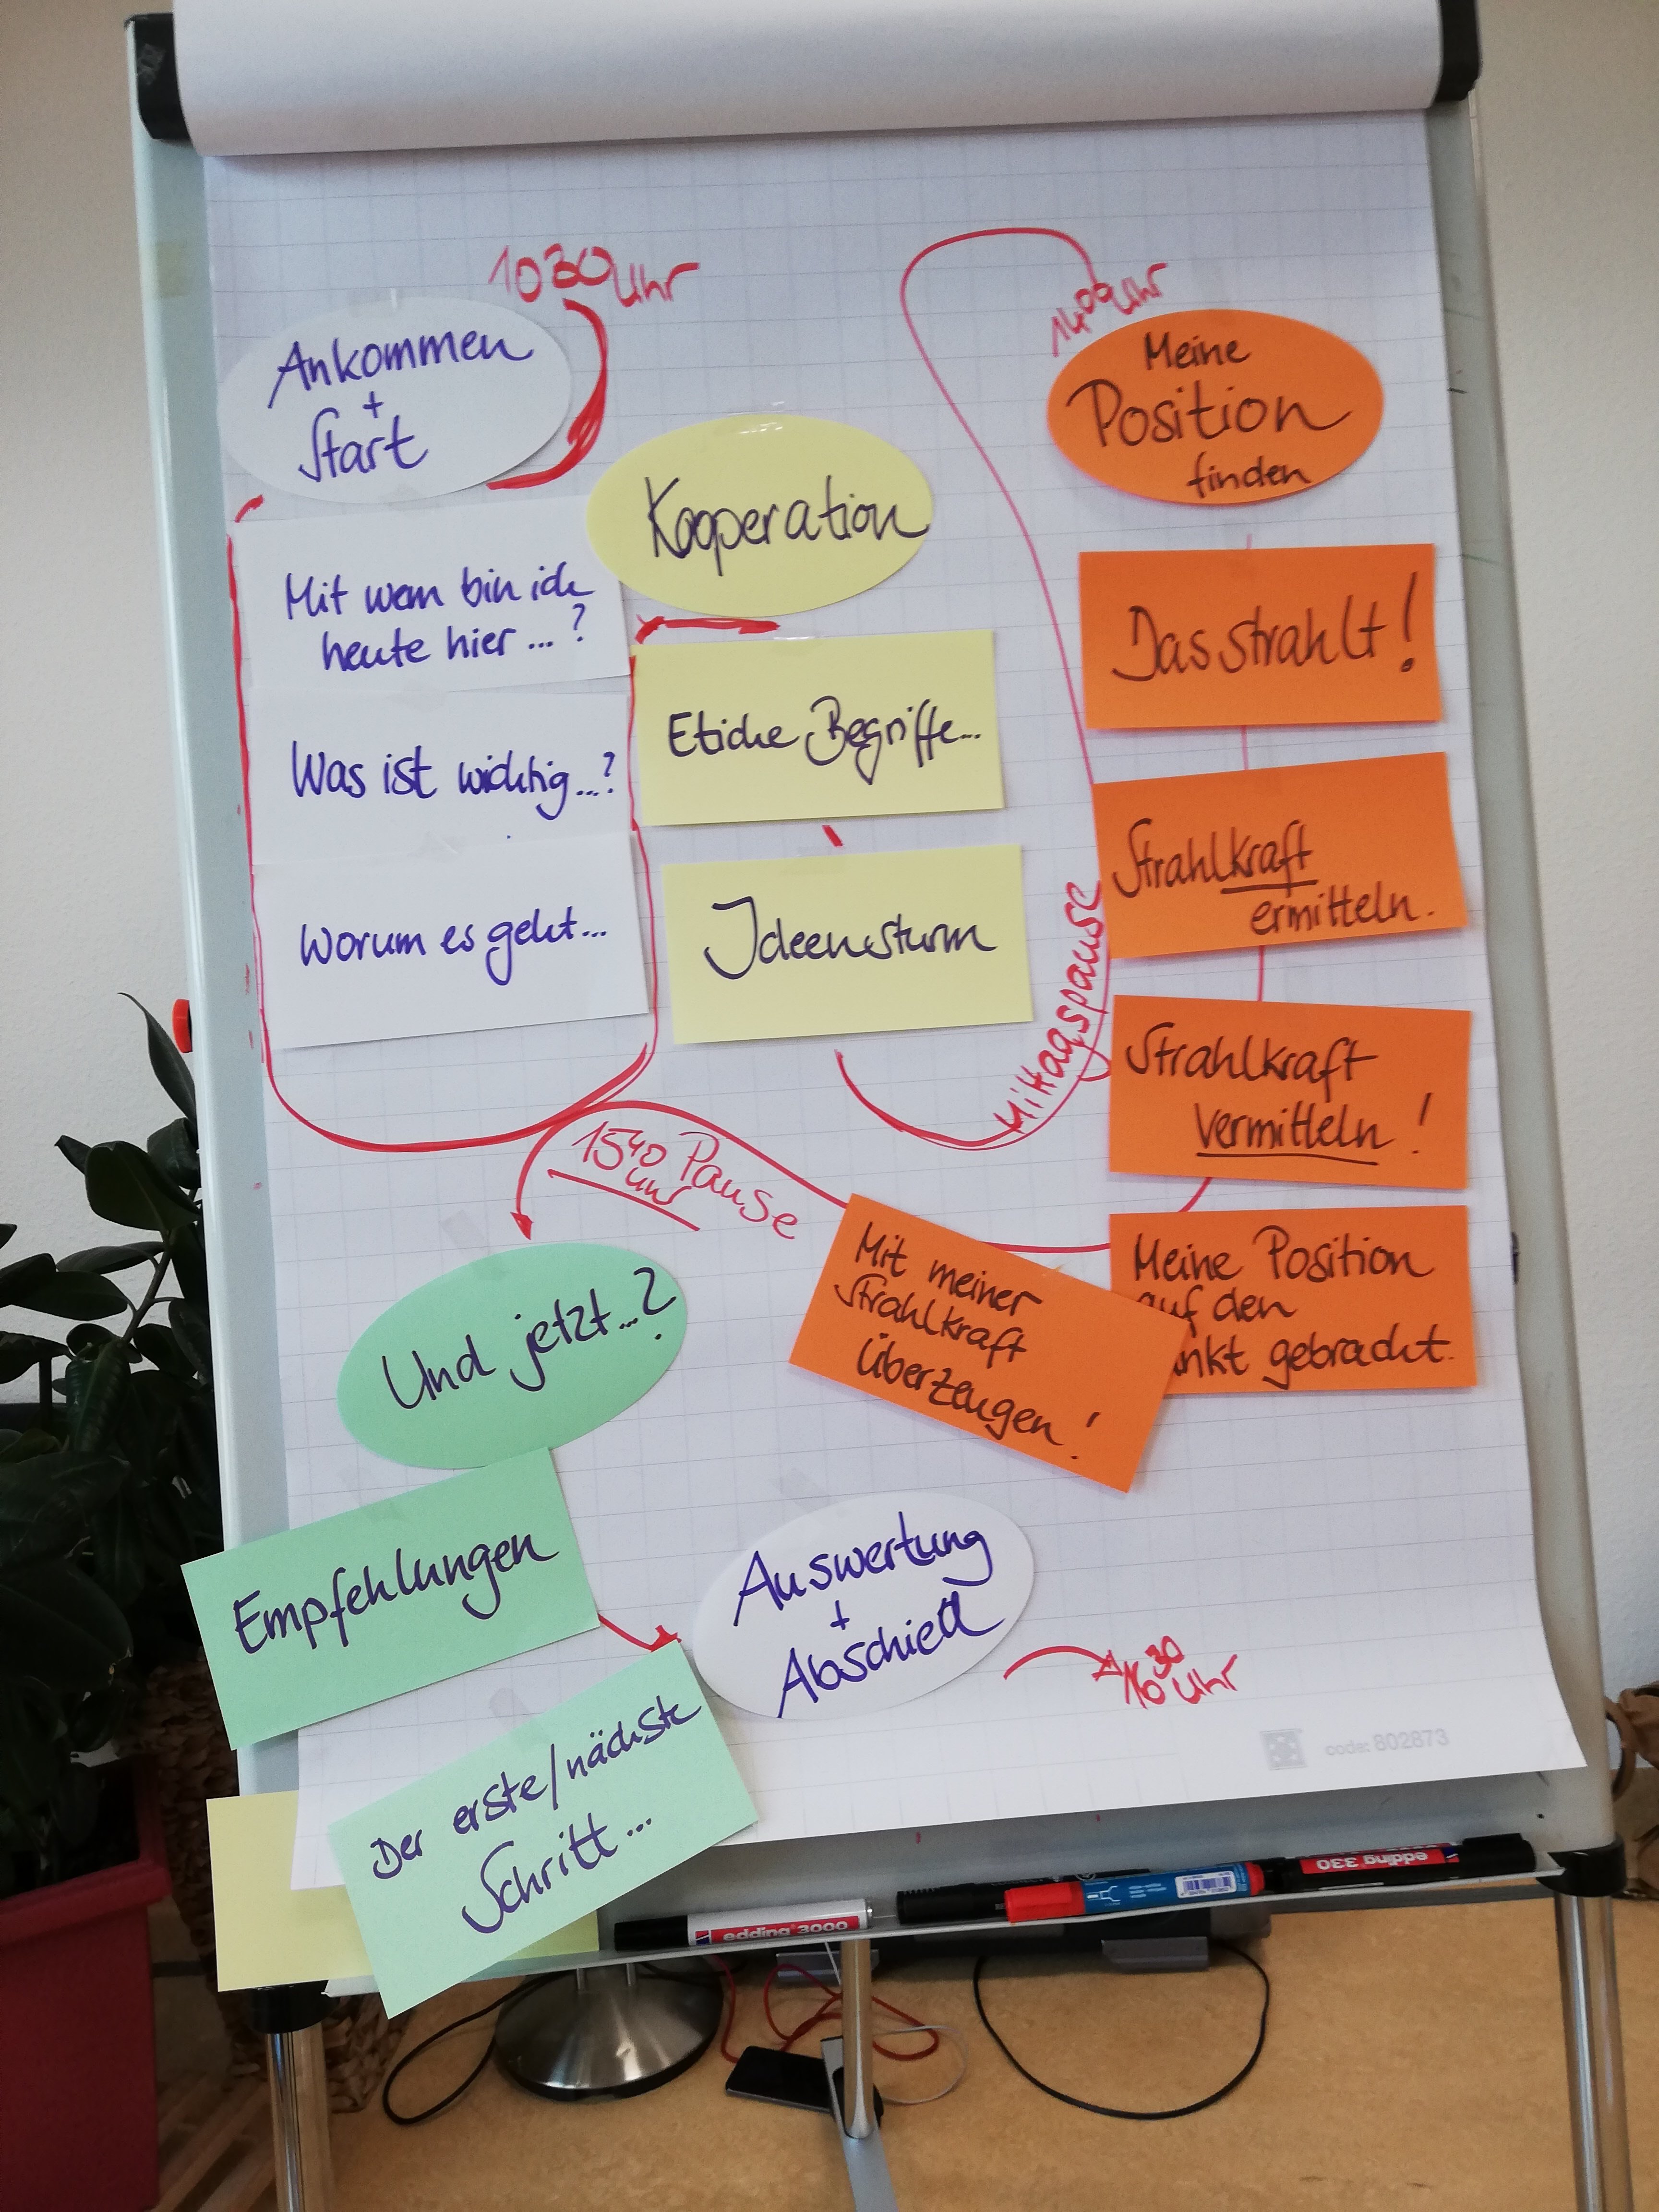 10 30 Uhr
Ankommen
+
Start
Mit wem bin ich
heute hier ... ?
Was ist wichtig...?
Worum es geht...
Kooperation
Etliche Begriffe...
Ideensturm
Mittagspause
14 00 Uhr
Meine
Position
finden
Das strahlt!
Strahlkraft
ermitteln.
Strahlkraft
vermitteln!
Meine Position
auf den
gebracht.
Mit meiner
Strahlkraft
überzeugen!
15 40 Pause
Uhr
Und jetzt...?
Empfehlungen
Der erste/nächste
Schritt...
Auswertung
+
Abschied
16 30
Uhr
code: 802873
edding 3000
edding 330